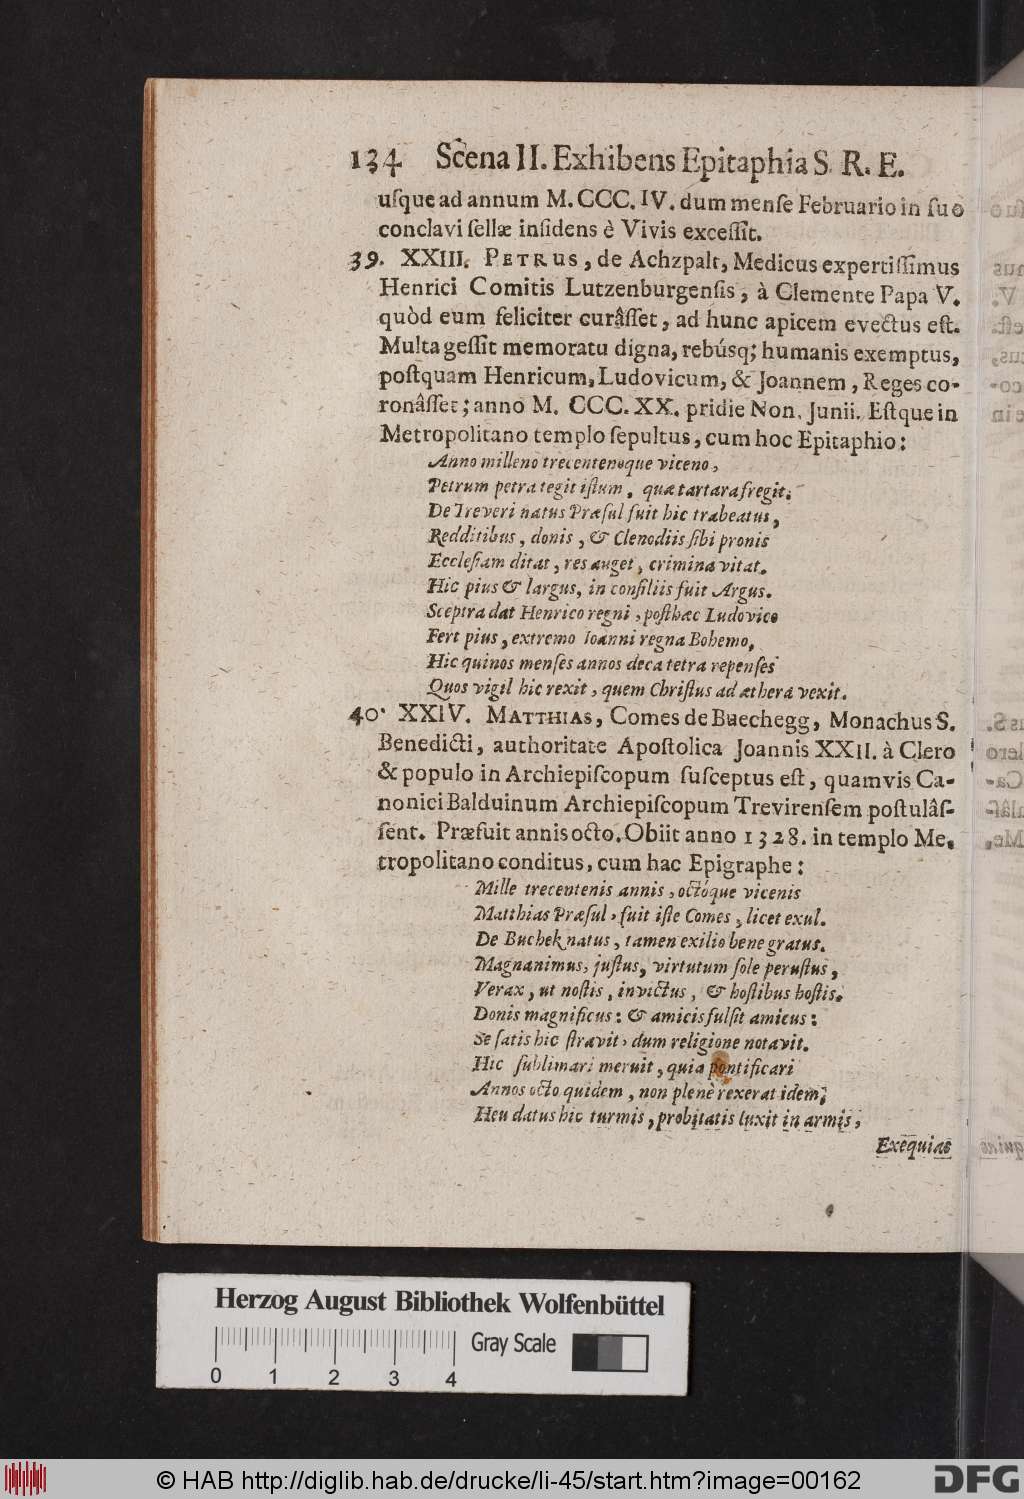 134 Scena II. Exhibens Epitaphia S. R. E.
uſque ad annum M. CCC. IV. dum menſe Februario in ſuo
conclavi ſellæ inſidens è Vivis exceſſit.
39. XXIII. PETRUS, de Achzpalt, Medicus expertiſſimus
Henrici Comitis Lutzenburgenſis, à Clemente Papa V.
quòd eum feliciter curâſſet, ad hunc apicem evectus eſt.
Multa geſſit memoratu digna, rebúsq; humanis exemptus,
poſtquam Henricum, Ludovicum, & Joannem, Reges co-
ronâſſet; anno M. CCC. XX. pridie Non. Junii. Eſtque in
Metropolitano templo ſepultus, cum hoc Epitaphio:
Anno milleno trecentenoque viceno,
Petrum petra tegit iſtum, quæ tartara fregit.
De Treveri natus Præſul fuit hic trabeatus,
Redditibus, donis, & Clenodiis ſibi pronis
Eccleſiam ditat, res auget, crimina vitat.
Hic pius & largus, in conſiliis fuit Argus.
Sceptra dat Henrico regni, poſthæc Ludovico
Fert pius, extremo Ioanni regna Bohemo,
Hic quinos menſes annos deca tetra repenſes
Quos vigil hic rexit, quem Chriſtus ad æthera vexit.
40. XXIV. MATTHIAS, Comes de Buechegg, Monachus S.
Benedicti, authoritate Apoſtolica Joannis XXII. à Clero
& populo in Archiepiſcopum ſuſceptus eſt, quamvis Ca-
nonici Balduinum Archiepiſcopum Trevirenſem poſtulâſ-
ſent. Præfuit annis octo. Obiit anno 1328. in templo Me-
tropolitano conditus, cum hac Epigraphe:
Mille trecentenis annis, octóque vicenis
Matthias Præſul, fuit iſte Comes, licet exul.
De Buchek natus, tamen exilio bene gratus.
Magnanimus, juſtus, virtutum ſole peruſtus,
Verax, ut noſtis, invictus, & hoſtibus hoſtis.
Donis magnificus: & amicis fulſit amicus:
Se ſatis hic ſtravit, dum religione notavit.
Hic ſublimari meruit, quia pontificari
Annos octo quidem, non plenè rexerat idem;
Heu datus hic turmis, probitatis luxit in armis,
Exequias
Herzog August Bibliothek Wolfenbüttel
0 1 2 3 4 Gray Scale
© HAB http://diglib.hab.de/drucke/li-45/start.htm?image=00162 DFG